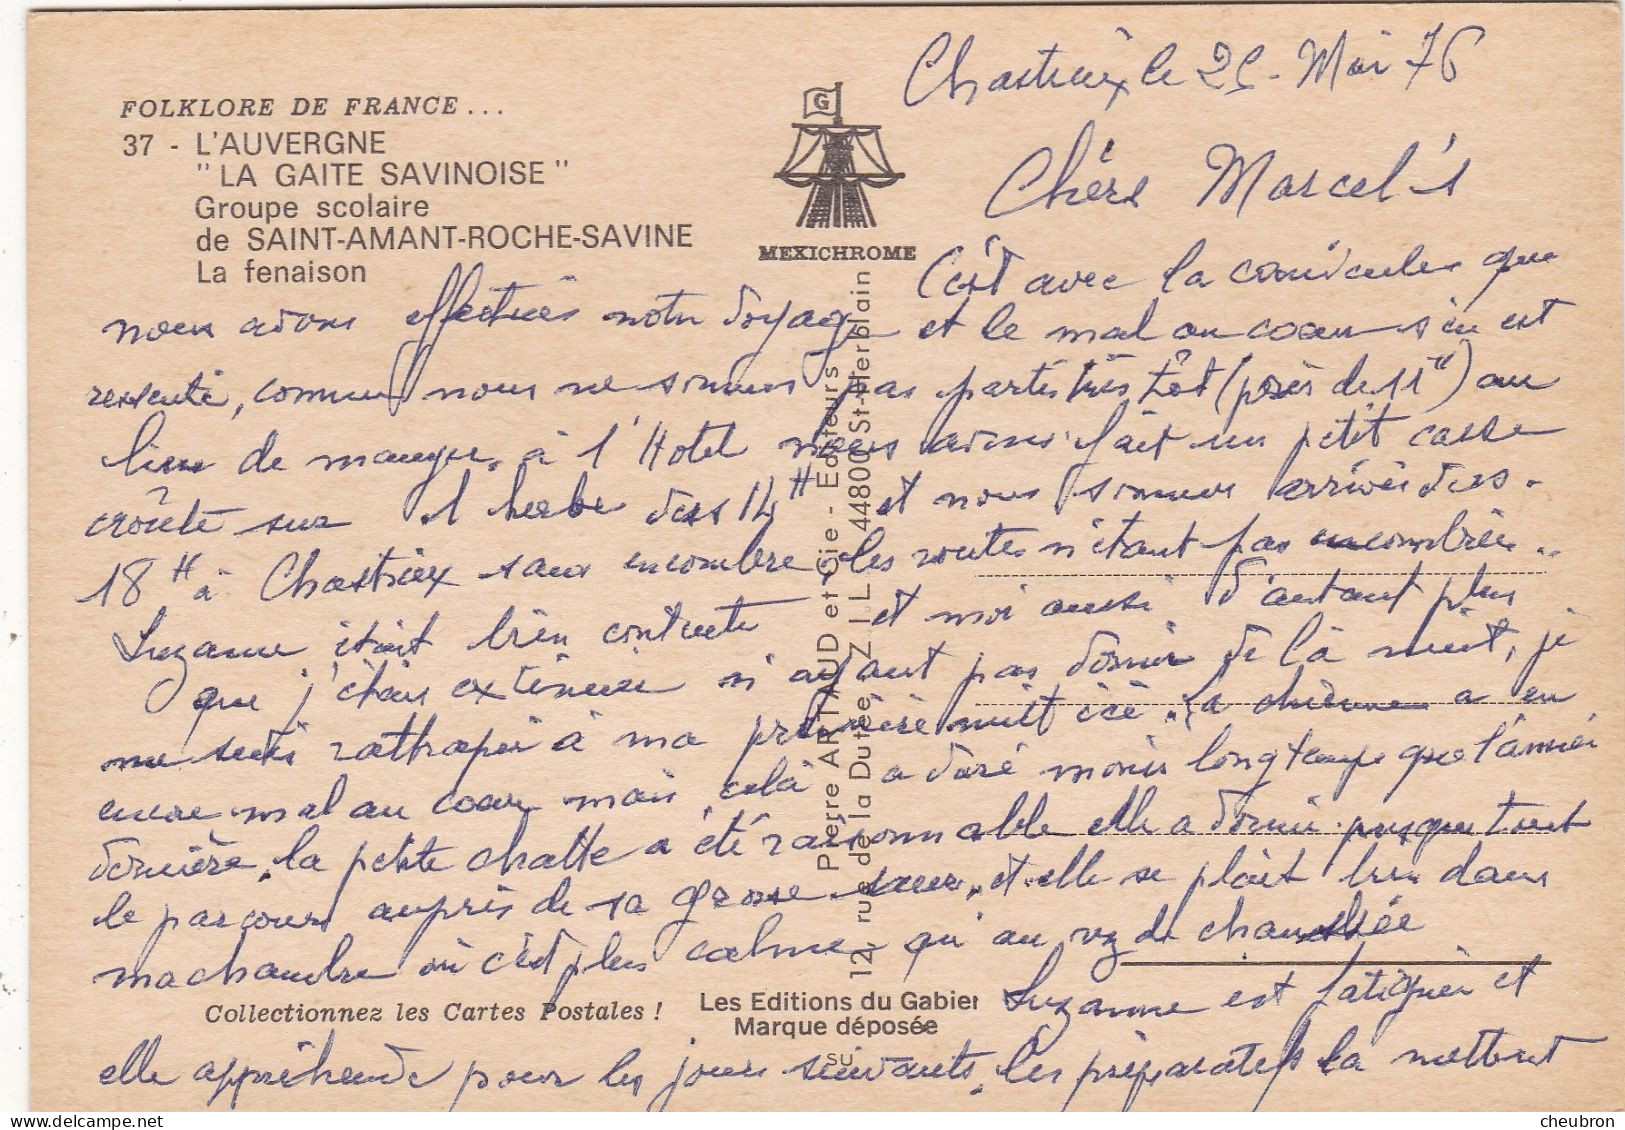 Chastreix le 25 - Mai 76
FOLKLORE DE FRANCE ...
37 - L'AUVERGNE
" LA GAITE SAVINOISE "
Groupe scolaire
de SAINT-AMANT-ROCHE-SAVINE
La fenaison
G
MEXICHROME
Chers Marcel's
C'est avec la canicule que
nous avons effectués notre voyage et le mal au coeur s'en est
ressenti, comme nous ne sommes pas partis très tôt (près de 11H) au
lieu de manger à l'Hotel nous avons fait un petit casse
croûte sur l'herbe vers 14H et nous sommes arrivés vers
18H à Chastreix sans encombre, les routes n'étant pas encombrées..
Suzanne était bien contente et moi aussi d'autant plus
que j'étais exténuée n'ayant pas dormi de la nuit, je
me suis rattrapée à ma première nuit ici. La chienne a eu
encore mal au coeur mais celà a duré moins longtemps que l'année
dernière, la petite chatte a été raisonnable elle a dormi presque tout
le parcours auprès de sa grosse soeur, et elle se plait bien dans
ma chambre où c'est plus calme qu'au rez de chaussée
Suzanne est fatiguée et
elle appréhende pour les jours suivants, les préparatifs la mettent
Pierre ARTAUD et Cie - Editeurs
12, rue de la Dutée Z.I.L. 44800 St-Herblain
Collectionnez les Cartes Postales !
Les Editions du Gabier
Marque déposée
SU
cheubron